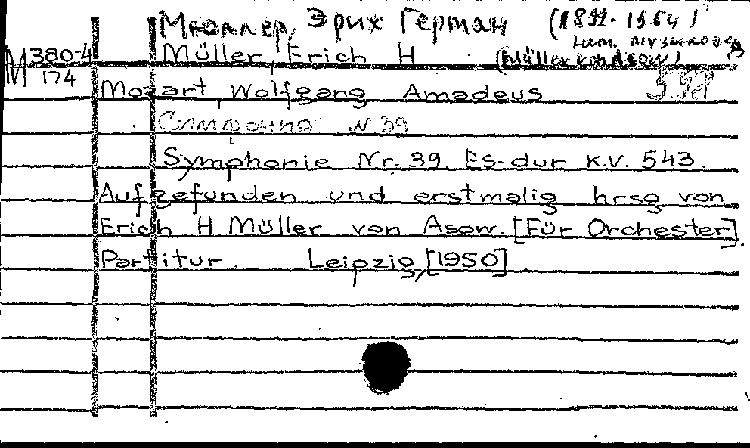 Мюллер, Эрих Герман (1892-1964)
нем. музыковед
M 380-4 Müller, Erich H. (Müller von Asow)
174
Mozart, Wolfgang Amadeus
Симфония N 39
Symphonie Nr. 39 Es-dur K.V. 543.
Aufgefunden und erstmalig hrsg von
Erich H Müller von Asow. [Für Orchester].
Partitur. Leipzig, [1950]